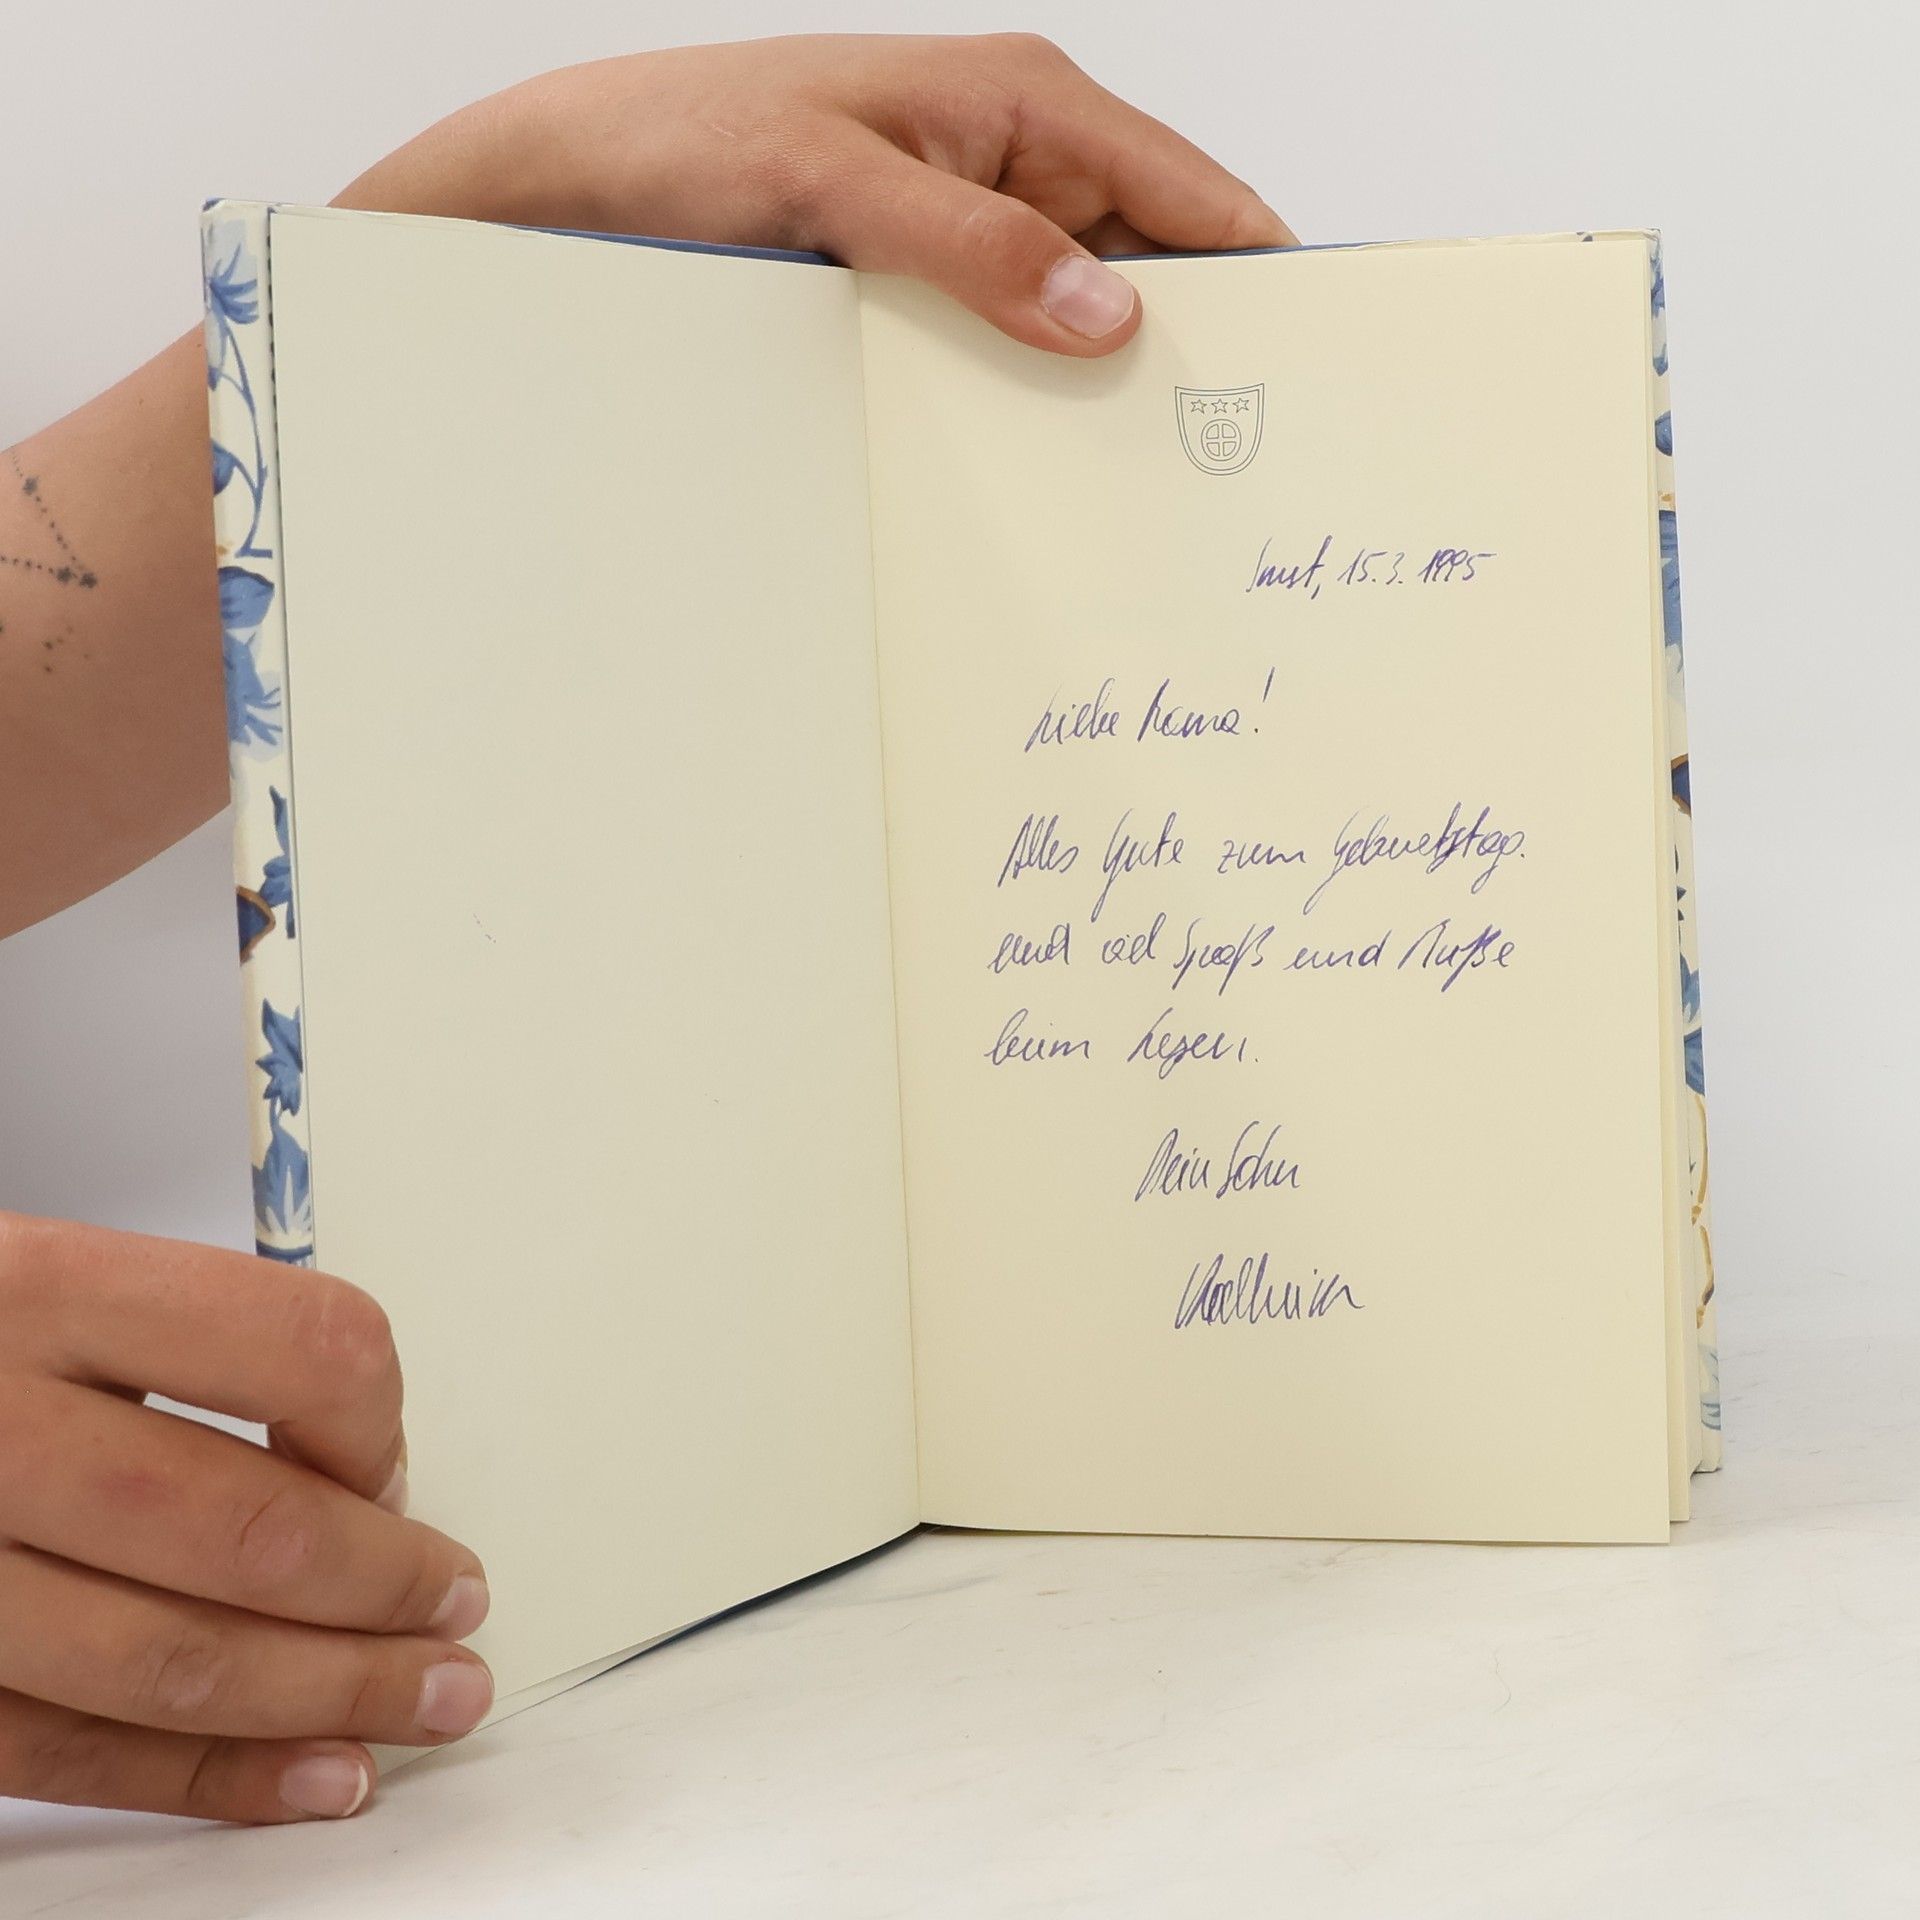 Imst, 15.3.1995
Liebe Mama!
Alles Gute zum Geburtstag.
und viel Spaß und Muße
beim Lesen.
Dein Sohn